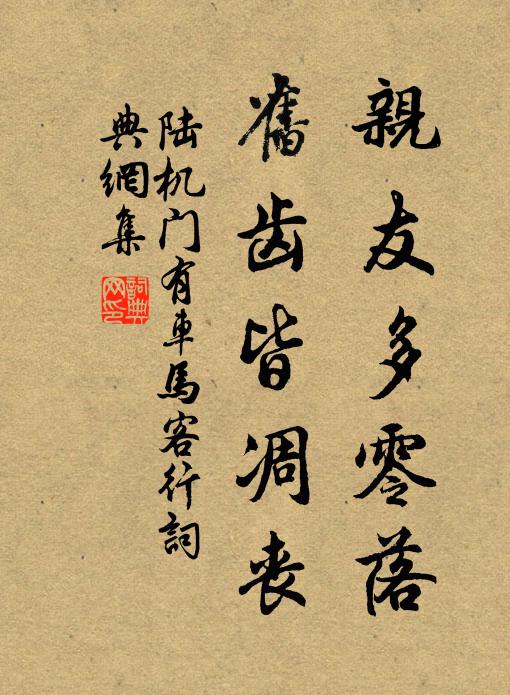 親友多零落
舊齿皆凋丧
陆机门有車馬客行詞
典網集
詞典网印